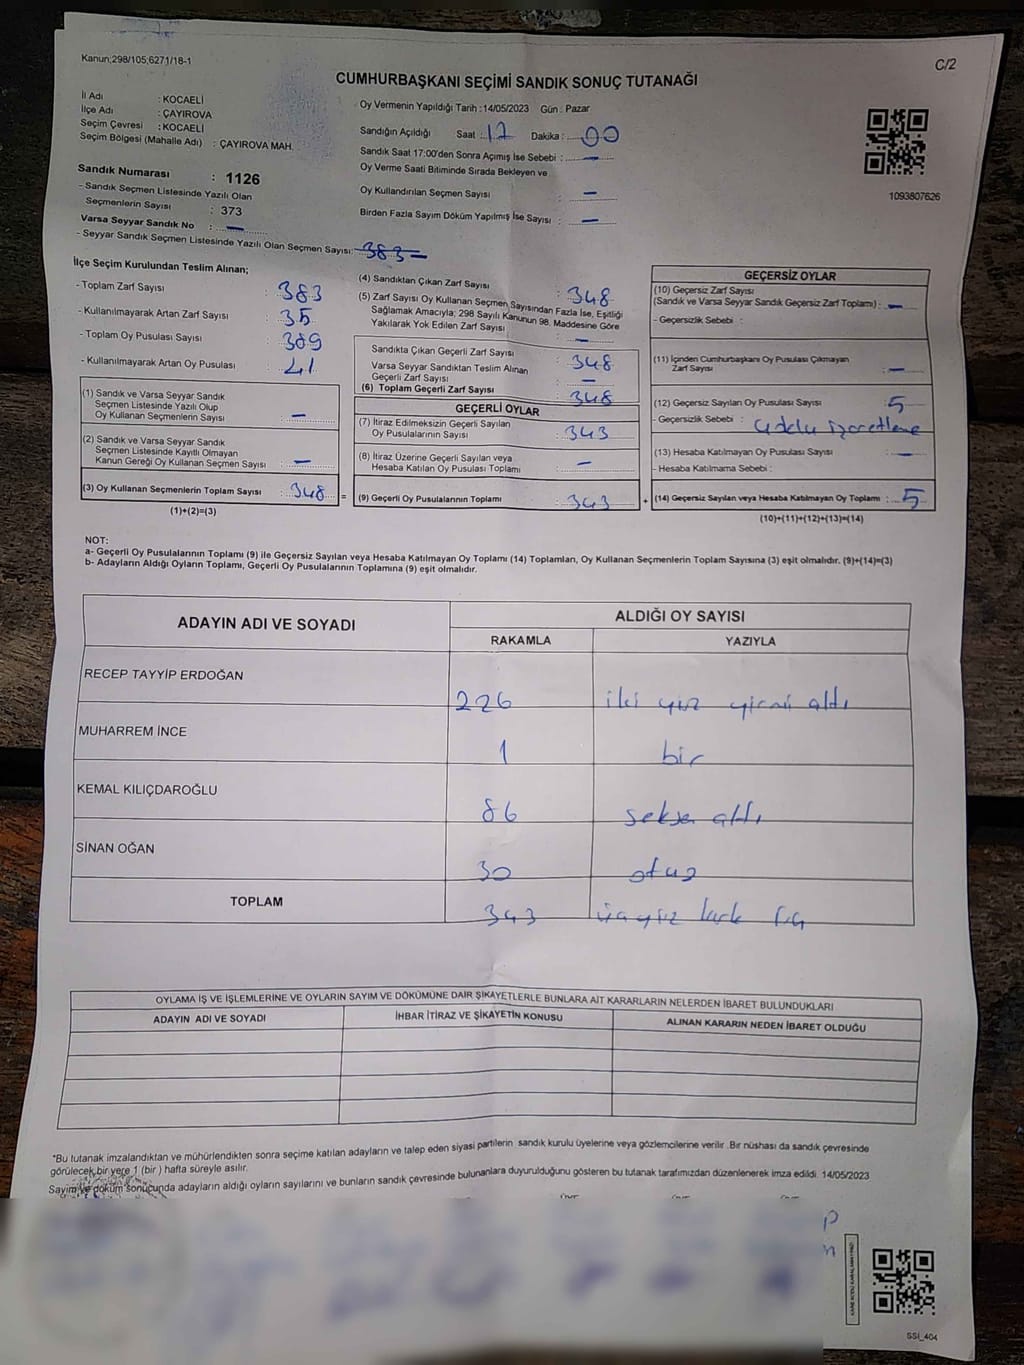 Kanun;298/105,6271/18-1
C/2
CUMHURBAŞKANI SEÇİMİ SANDIK SONUÇ TUTANAĞI
İl Adı : KOCAELİ
İlçe Adı : ÇAYIROVA
Seçim Çevresi : KOCAELİ
Seçim Bölgesi (Mahalle Adı) : ÇAYIROVA MAH.
Oy Vermenin Yapıldığı Tarih :14/05/2023 Gün : Pazar
Sandığın Açıldığı Saat : 17 Dakika : 00
Sandık Saat 17:00'den Sonra Açımış İse Sebebi : —
Oy Verme Saati Bitiminde Sırada Bekleyen ve
Oy Kullandırılan Seçmen Sayısı : —
Birden Fazla Sayım Döküm Yapılmış İse Sayısı : —
1093807626
Sandık Numarası : 1126
- Sandık Seçmen Listesinde Yazılı Olan
Seçmenlerin Sayısı : 373
Varsa Seyyar Sandık No : —
- Seyyar Sandık Seçmen Listesinde Yazılı Olan Seçmen Sayısı: 383
İlçe Seçim Kurulundan Teslim Alınan;
- Toplam Zarf Sayısı : 383
- Kullanılmayarak Artan Zarf Sayısı : 35
- Toplam Oy Pusulası Sayısı : 389
- Kullanılmayarak Artan Oy Pusulası : 41
(1) Sandık ve Varsa Seyyar Sandık
Seçmen Listesinde Yazılı Olup
Oy Kullanan Seçmenlerin Sayısı : —
(2) Sandık ve Varsa Seyyar Sandık
Seçmen Listesinde Kayıtlı Olmayan
Kanun Gereği Oy Kullanan Seçmen Sayısı : —
(3) Oy Kullanan Seçmenlerin Toplam Sayısı : 348 =
(1)+(2)=(3)
(4) Sandıktan Çıkan Zarf Sayısı : 348
(5) Zarf Sayısı Oy Kullanan Seçmen Sayısından Fazla İse, Eşitliği
Sağlamak Amacıyla; 298 Sayılı Kanunun 98. Maddesine Göre
Yakılarak Yok Edilen Zarf Sayısı : —
Sandıkta Çıkan Geçerli Zarf Sayısı : 348
Varsa Seyyar Sandıktan Teslim Alınan
Geçerli Zarf Sayısı : —
(6) Toplam Geçerli Zarf Sayısı : 348
GEÇERLİ OYLAR
(7) İtiraz Edilmeksizin Geçerli Sayılan
Oy Pusulalarının Sayısı : 343
(8) İtiraz Üzerine Geçerli Sayılan veya
Hesaba Katılan Oy Pusulası Toplamı : —
(9) Geçerli Oy Pusulalarının Toplamı : 343 +
GEÇERSİZ OYLAR
(10) Geçersiz Zarf Sayısı
(Sandık ve Varsa Seyyar Sandık Geçersiz Zarf Toplamı) : —
- Geçersizlik Sebebi :
(11) İçinden Cumhurbaşkanı Oy Pusulası Çıkmayan
Zarf Sayısı : —
(12) Geçersiz Sayılan Oy Pusulası Sayısı : 5
- Geçersizlik Sebebi :
(13) Hesaba Katılmayan Oy Pusulası Sayısı : —
- Hesaba Katılmama Sebebi :
(14) Geçersiz Sayılan veya Hesaba Katılmayan Oy Toplamı : 5
(10)+(11)+(12)+(13)=(14)
NOT:
a- Geçerli Oy Pusulalarının Toplamı (9) ile Geçersiz Sayılan veya Hesaba Katılmayan Oy Toplamı (14) Toplamları, Oy Kullanan Seçmenlerin Toplam Sayısına (3) eşit olmalıdır. (9)+(14)=(3)
b- Adayların Aldığı Oyların Toplamı, Geçerli Oy Pusulalarının Toplamına (9) eşit olmalıdır.
ADAYIN ADI VE SOYADI
ALDIĞI OY SAYISI
RAKAMLA YAZIYLA
RECEP TAYYİP ERDOĞAN 226 iki yüz yirmi altı
MUHARREM İNCE 1 bir
KEMAL KILIÇDAROĞLU 86 seksen altı
SİNAN OĞAN 30 otuz
TOPLAM 343 üçyüz kırk üç
OYLAMA İŞ VE İŞLEMLERİNE VE OYLARIN SAYIM VE DÖKÜMÜNE DAİR ŞİKAYETLERLE BUNLARA AİT KARARLARIN NELERDEN İBARET BULUNDUKLARI
ADAYIN ADI VE SOYADI İHBAR İTİRAZ VE ŞİKAYETİN KONUSU ALINAN KARARIN NEDEN İBARET OLDUĞU
*Bu tutanak imzalandıktan ve mühürlendikten sonra seçime katılan adayların ve talep eden siyasi partilerin sandık kurulu üyelerine veya gözlemcilerine verilir. Bir nüshası da sandık çevresinde
görülecek bir yere 1 (bir ) hafta süreyle asılır.
Sayım ve döküm sonucunda adayların aldığı oyların sayılarını ve bunların sandık çevresinde bulunanlara duyurulduğunu gösteren bu tutanak tarafımızdan düzenlenerek imza edildi. 14/05/2023
SSİ_404